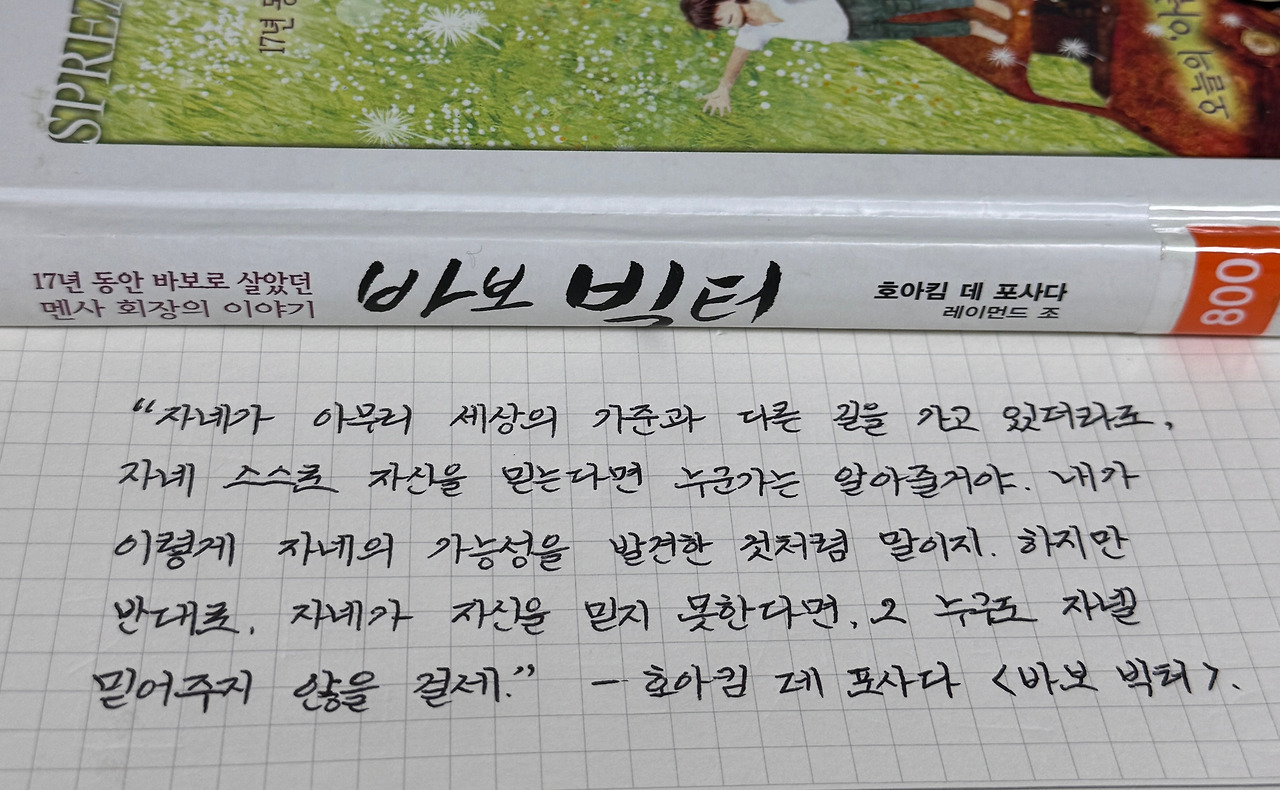 SPREZ
17년 동
오늘의 이
17년 동안 바보로 살았던
멘사 회장의 이야기
바보 빅터
호아킴 데 포사다
레이먼드 조
800
“자네가 아무리 세상의 기준과 다른 길을 가고 있더라도,
자네 스스로 자신을 믿는다면 누군가는 알아줄거야. 내가
이렇게 자네의 가능성을 발견한 것처럼 말이지. 하지만
반대로, 자네가 자신을 믿지 못한다면, 그 누구도 자넬
믿어주지 않을 걸세.” – 호아킴 데 포사다 <바보 빅터>.